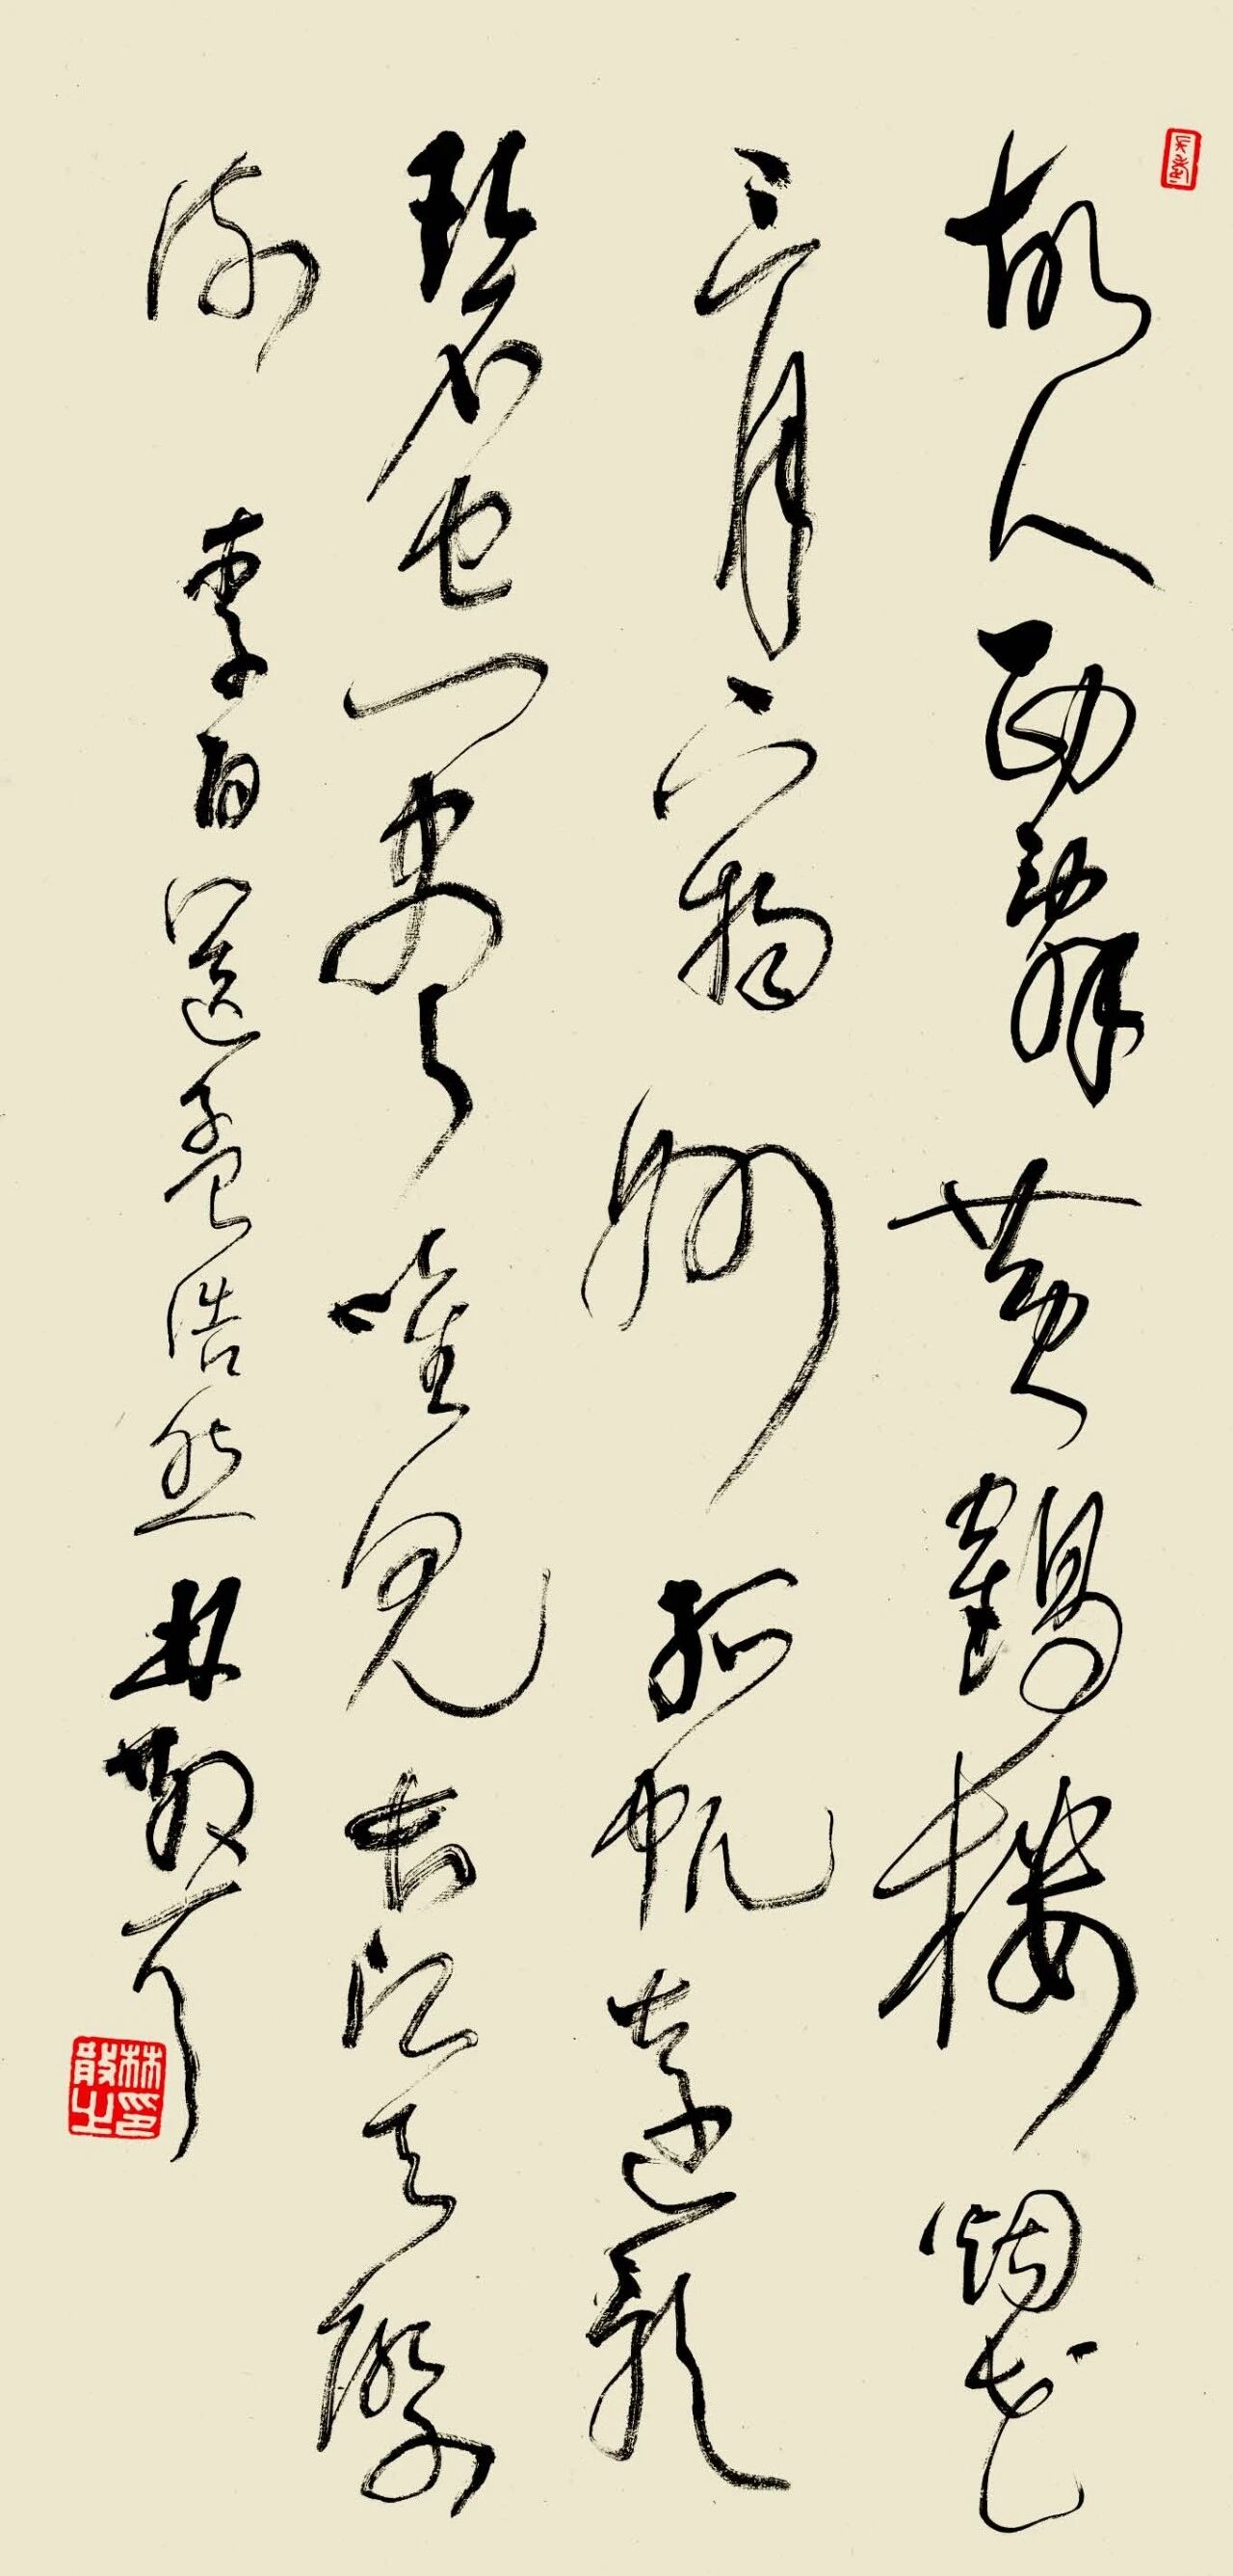 故人西辭黃鶴樓烟花
三月下揚州孤帆遠影
碧空盡唯見長江天際
流 李白送孟浩然 林散耳
林散之印